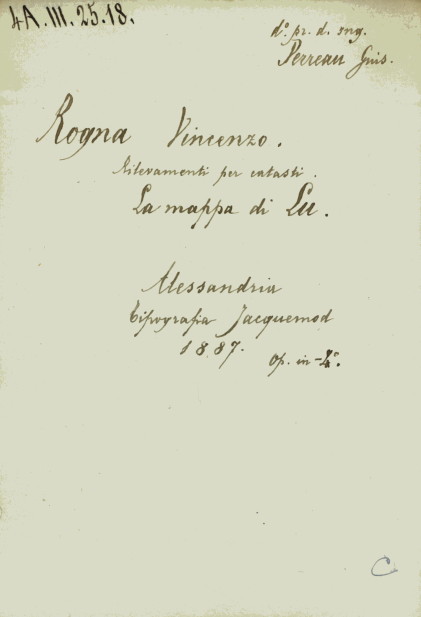 4A.III.25.18.
d.º pr. d. ing.
Perreau Gius.
Rogna Vincenzo.
Rilevamenti per catasti.
La mappa di Lu.
Alessandria
Tipografia Jacquemod
1887.
Op. in-4º.
C